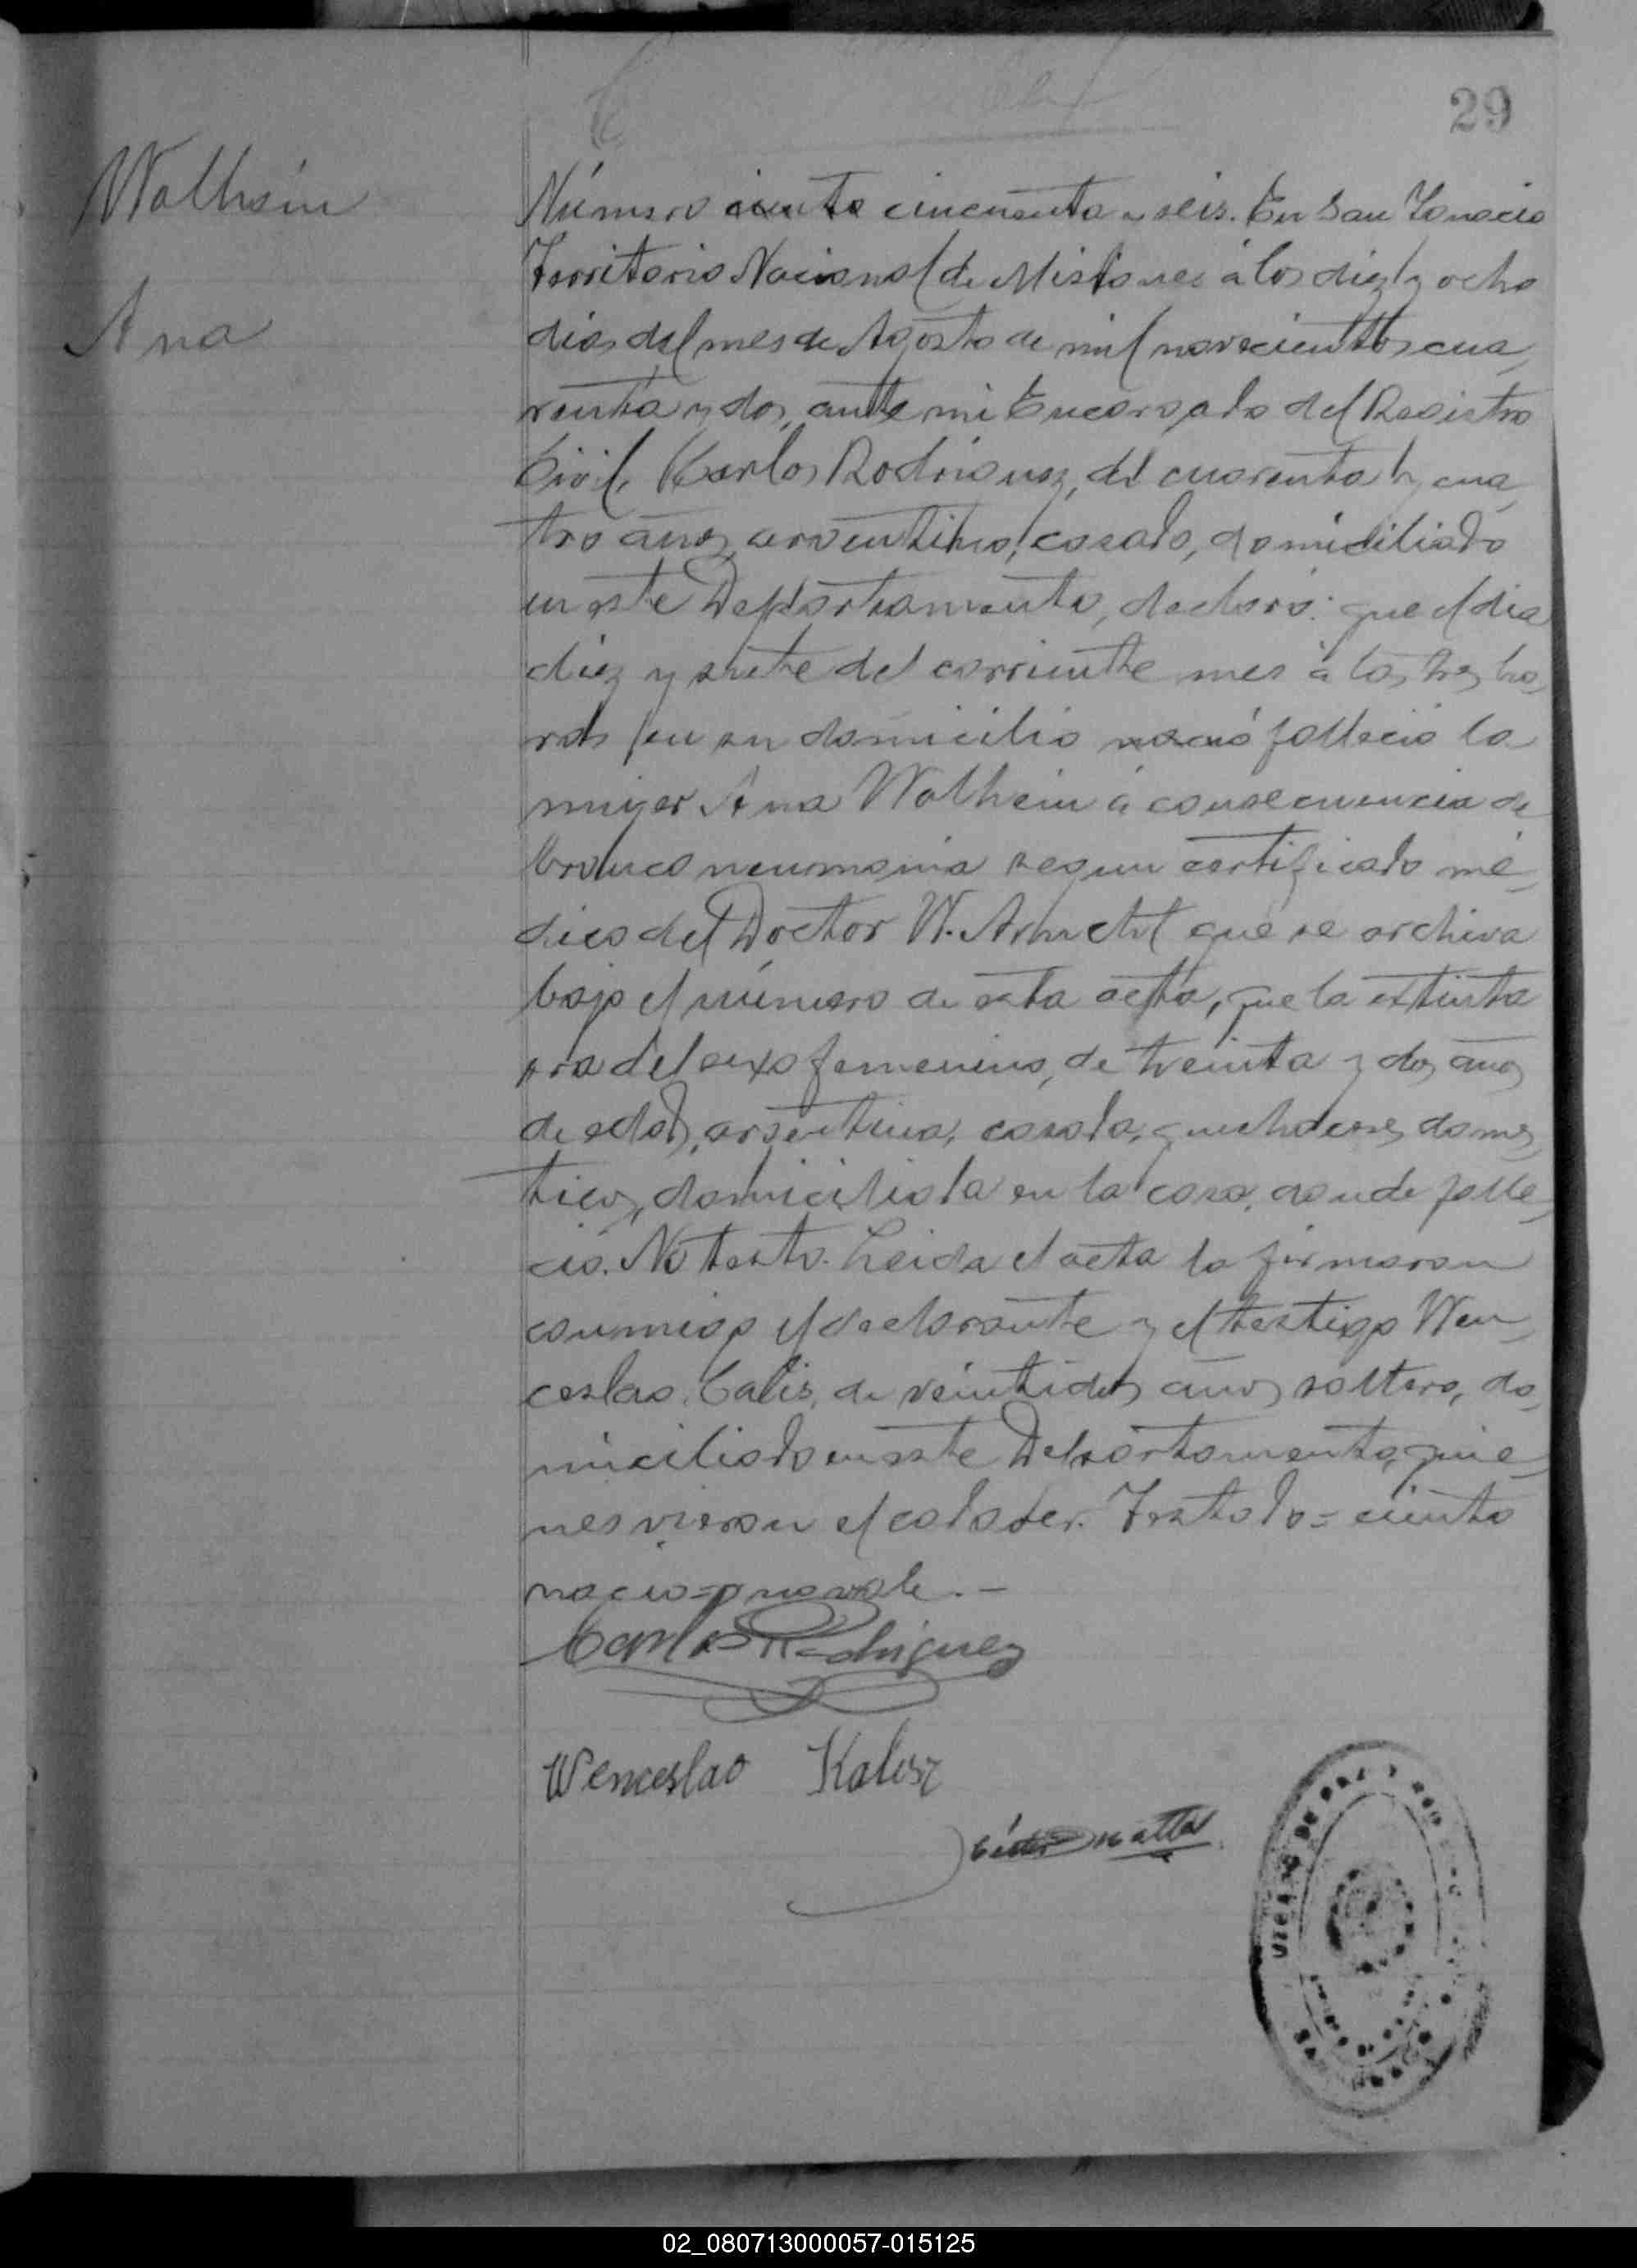 29
Wolhein
Ana
Número ciento cincuenta y seis. En San Ignacio
Territorio Nacional de Misiones á los diez y ocho
dias del mes de Agosto de mil novecientos cua
renta y dos, ante mi Encargado del Registro
Civil, Carlos Rodriguez, de cuarenta y cua
tro años, argentino, casado, domiciliado
en este Departamento, declaró: que el dia
diez y siete del corriente mes á las tres ho
ras en su domicilio nació falleció la
mujer Ana Wolhein á consecuencia de
bronconeumonia segun certificado mé
dico del Doctor W. que se archiva
bajo el número de esta acta, que la extinta
era del sexo femenino, de treinta y dos años
de edad, argentina, casada, quehaceres domes
ticos, domiciliada en la casa donde falle
ció. No testó. Leida el acta la firmaron
conmigo el declarante y el testigo Wen
ceslao Calis, de veintidos años soltero, do
miciliado en este Departamento, quie
nes vieron el cadaver. Testado = ciento
nacio = no vale. —
Carlos Rodriguez
Wenceslao Kalisz
02_080713000057-015125